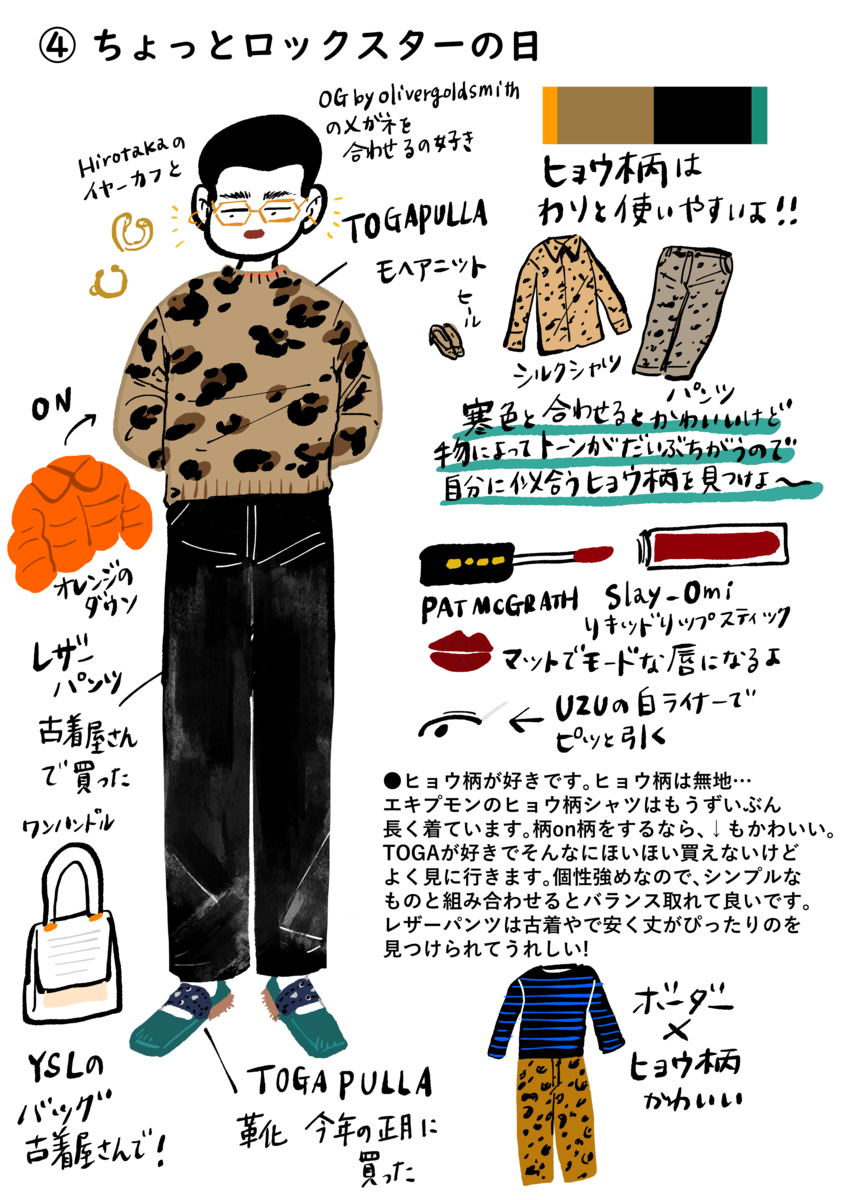 ④ ちょっとロックスターの日
OG by olivergoldsmith
のメガネを
合わせるの好き
Hirotakaの
イヤーカフと
TOGAPULLA
モヘアニット
ヒョウ柄は
わりと使いやすいよ!!
ヒール
シルクシャツ
パンツ
寒色と合わせるとかわいいけど
物によってトーンがだいぶちがうので
自分に似合うヒョウ柄を見つけよ〜
ON
オレンジの
ダウン
PAT McGRATH Slay-Omi
リキッドリップスティック
マットでモードな唇になるよ
UZUの白ライナーで
ピッと引く
レザー
パンツ
古着屋さん
で買った
ワンハンドル
●ヒョウ柄が好きです。ヒョウ柄は無地…
エキプモンのヒョウ柄シャツはもうずいぶん
長く着ています。柄on柄をするなら、↓もかわいい。
TOGAが好きでそんなにほいほい買えないけど
よく見に行きます。個性強めなので、シンプルな
ものと組み合わせるとバランス取れて良いです。
レザーパンツは古着やで安く丈がぴったりのを
見つけられてうれしい!
ボーダー
×
ヒョウ柄
かわいい
YSLの
バッグ
古着屋さんで!
TOGA PULLA
革化 今年の正月に
買った